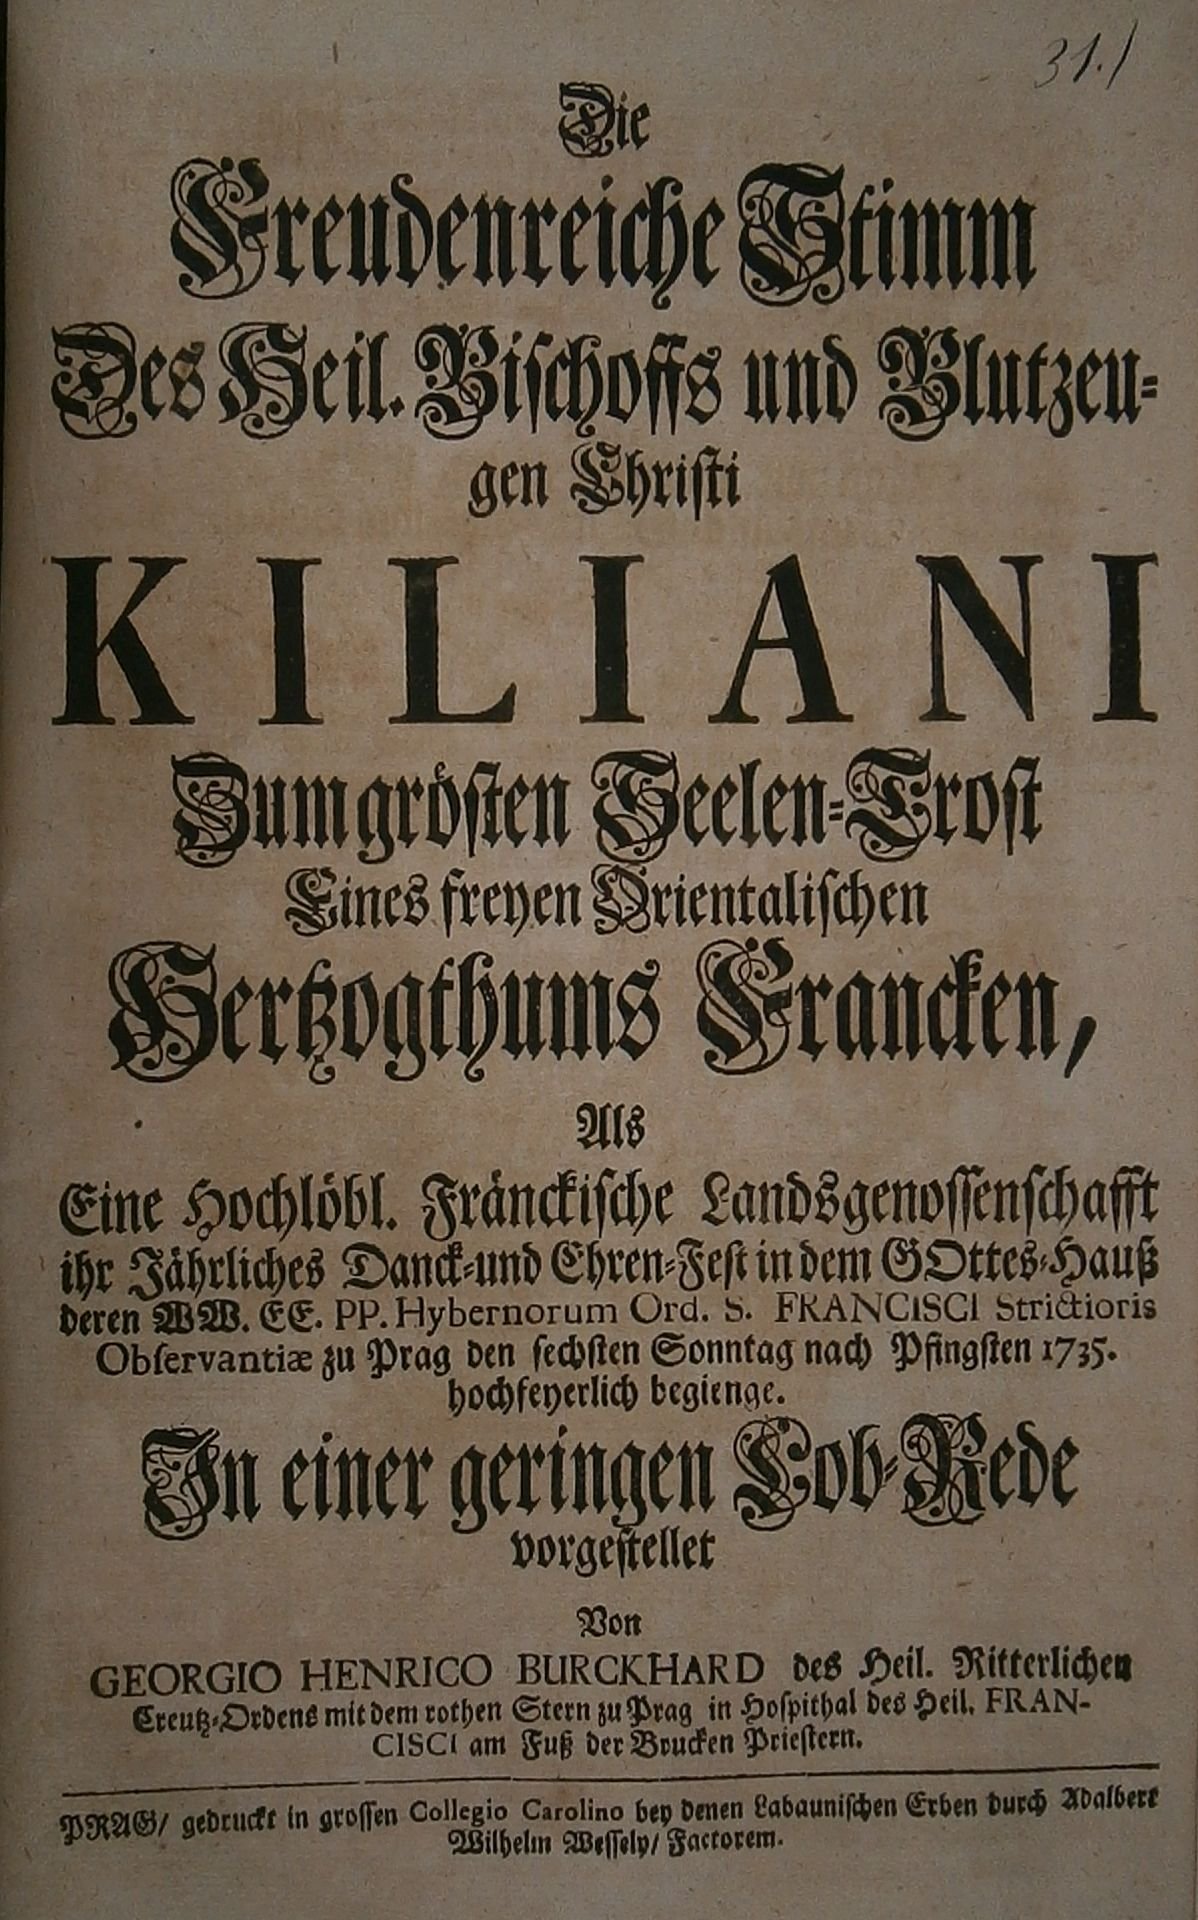 31.)
Die
Freudenreiche Stimm
Des Heil. Bischoffs und Blutzeu-
gen Christi
KILIANI
Zum grösten Seelen-Trost
Eines freyen Orientalischen
Hertzogthums Francken,
Als
Eine Hochlöbl. Fränckische Landsgenossenschafft
ihr Jährliches Danck-und Ehren-Fest in dem GOttes-Hauß
deren WW. EE. PP. Hybernorum Ord. S. FRANCISCI Strictioris
Observantiæ zu Prag den sechsten Sonntag nach Pfingsten 1735.
hochfeyerlich begienge.
In einer geringen Lob-Rede
vorgestellet
Von
GEORGIO HENRICO BURCKHARD des Heil. Ritterlichen
Creutz-Ordens mit dem rothen Stern zu Prag in Hospithal des Heil. FRAN-
CISCI am Fuß der Brucken Priestern.
PRAG/ gedruckt in grossen Collegio Carolino bey denen Labaunischen Erben durch Adalbert
Wilhelm Wessely/ Factorem.